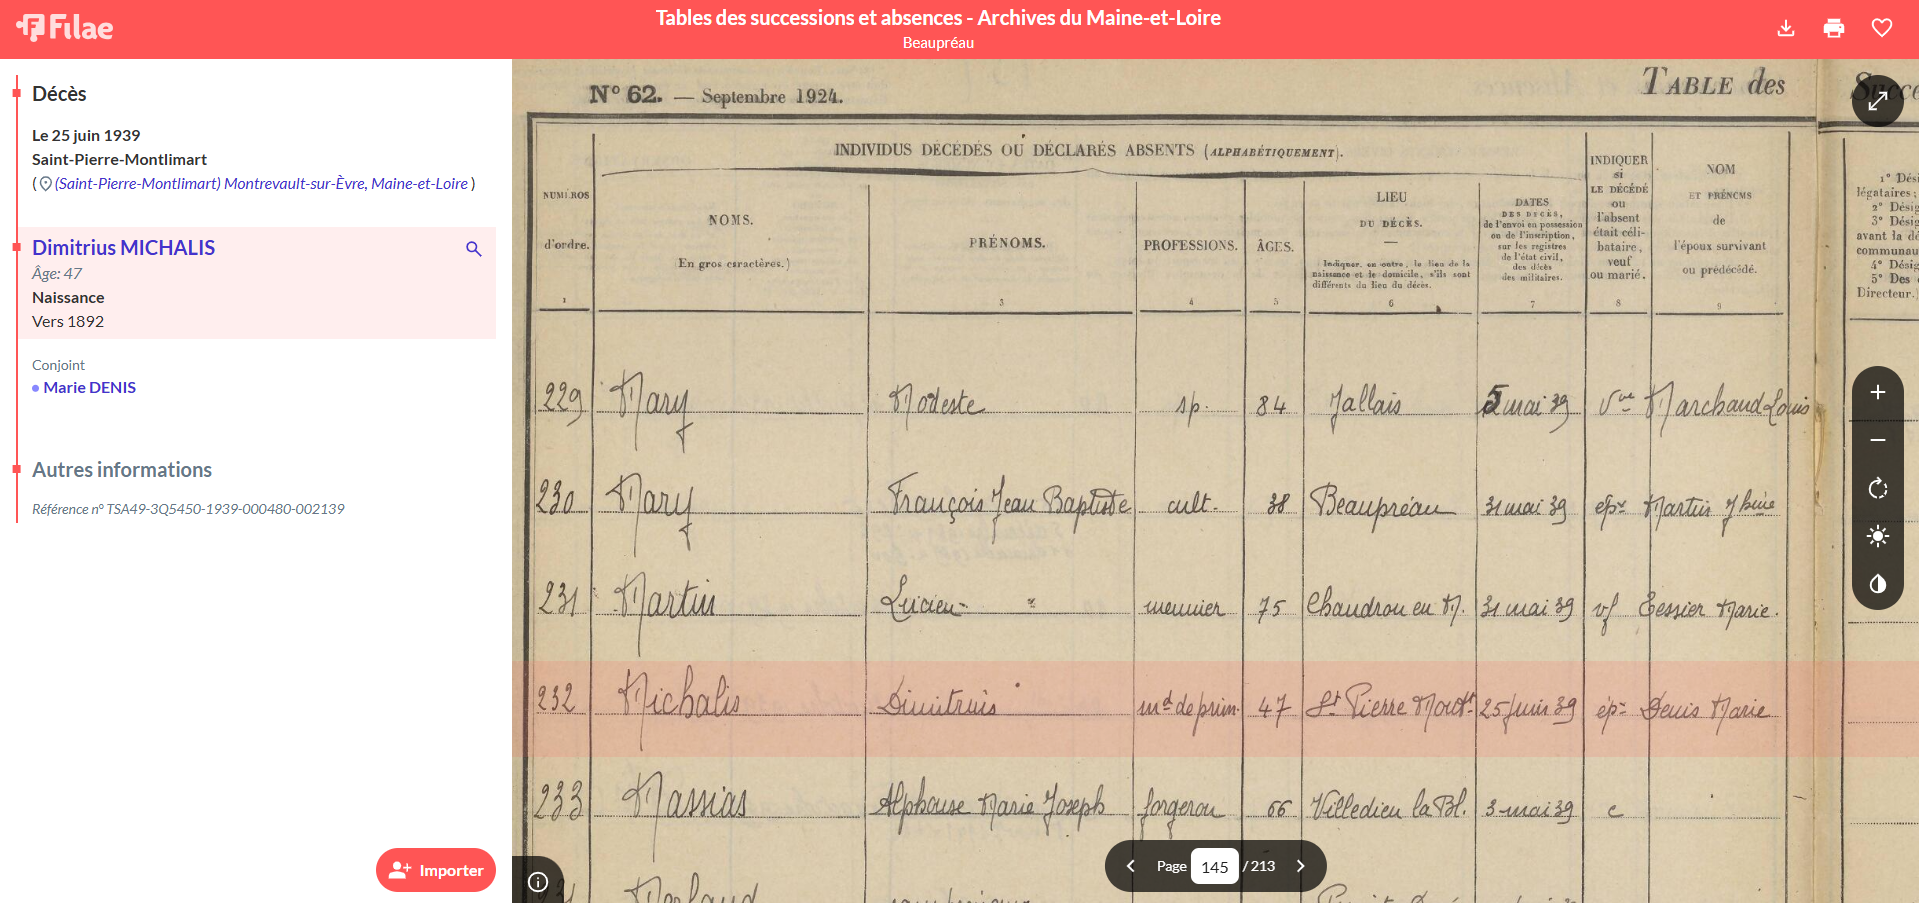 Filae
Tables des successions et absences - Archives du Maine-et-Loire
Beaupréau
Décès
Le 25 juin 1939
Saint-Pierre-Montlimart
( (Saint-Pierre-Montlimart) Montrevault-sur-Èvre, Maine-et-Loire )
Dimitrius MICHALIS
Âge: 47
Naissance
Vers 1892
Conjoint
Marie DENIS
Autres informations
Référence n° TSA49-3Q5450-1939-000480-002139
Importer
N° 62. — Septembre 1924.
TABLE des
Succe
INDIVIDUS DÉCÉDÉS OU DÉCLARÉS ABSENTS (ALPHABÉTIQUEMENT).
NUMÉROS
d'ordre.
1
NOMS.
(En gros caractères.)
PRÉNOMS.
3
PROFESSIONS.
4
ÂGES.
5
LIEU
DU DÉCÈS.
—
Indiquer, en outre, le lieu de la
naissance et le domicile, s'ils sont
différents du lieu du décès.
6
DATES
DES DÉCÈS,
de l'envoi en possession
ou de l'inscription,
sur les registres
de l'état civil,
des décès
des militaires.
7
INDIQUER
si
LE DÉCÉDÉ
ou
l'absent
était céli-
bataire,
veuf
ou marié.
8
NOM
ET PRÉNOMS
de
l'époux survivant
ou prédécédé.
9
1° Dési
légataires ;
2° Désig
3° Désig
avant la dé
communau
4° Désig
5° Des
Directeur.)
229 Mary Modeste sp. 84 Jallais 5 mai 39 Vve Marchand Louis
230 Mary François Jean Baptiste cult. 38 Beaupréau 31 mai 39 épx Martin
231 Martin Lucien meunier 75 Chaudron en M. 31 mai 39 vf Tessier Marie.
232 Michalis Dimitrius md de prim. 47 St Pierre Montt 25 juin 39 épx Denis Marie
233 Massias Alphonse Marie Joseph forgeron 66 Villedieu la Bl. 3 mai 39 c
Page 145 / 213